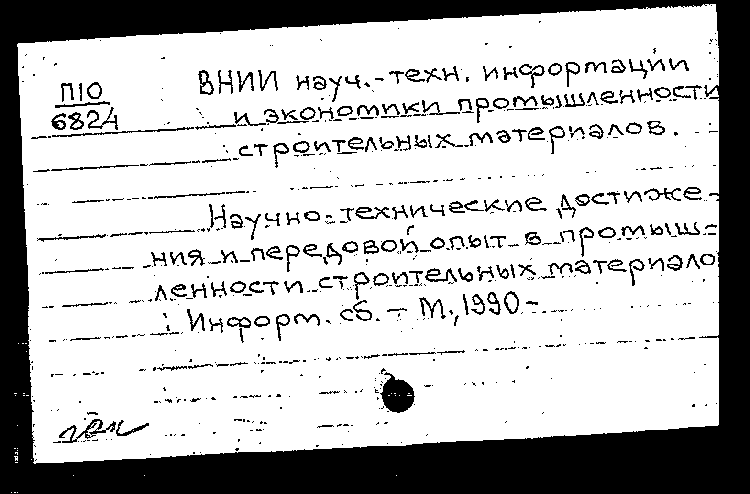 П10
6824
ВНИИ науч.-техн. информации
и экономики промышленности
строительных материалов.
Научно-технические достиже-
ния и передовой опыт в промыш-
ленности строительных материало
: Информ. сб. - М., 1990-